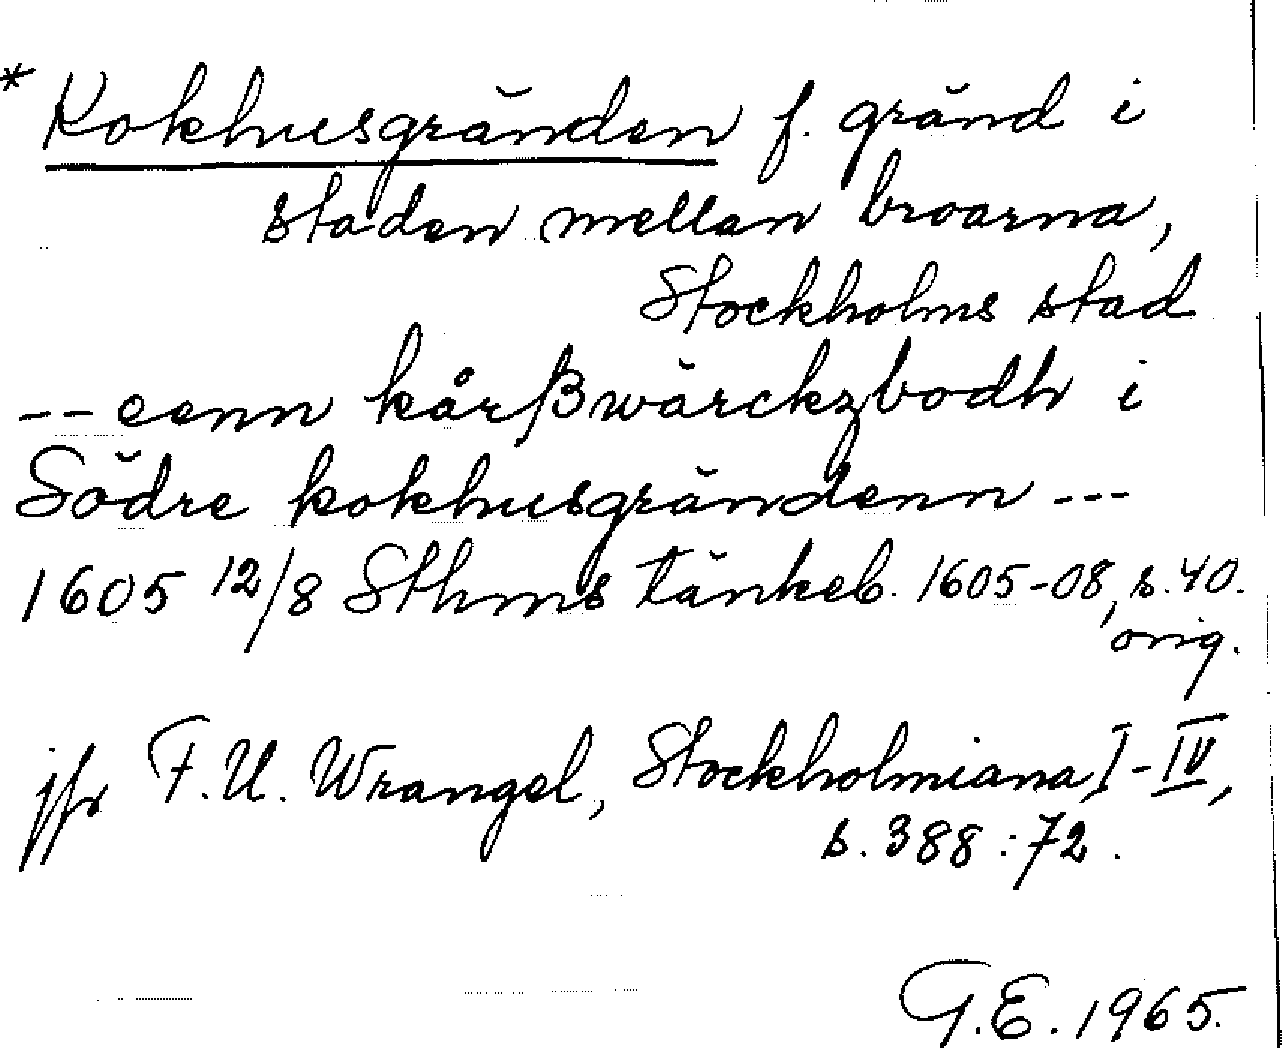 * Kokhusgränden f. gränd i
staden mellan broarna,
Stockholms stad
-- eenn kårßwärckzbodh i
Södre kokhusgrändenn ---
1605 12/8 Sthms tänkeb. 1605-08, s. 40.
orig.
jfr F. U. Wrangel, Stockholmiana I-IV,
s. 388:72.
G.E. 1965.